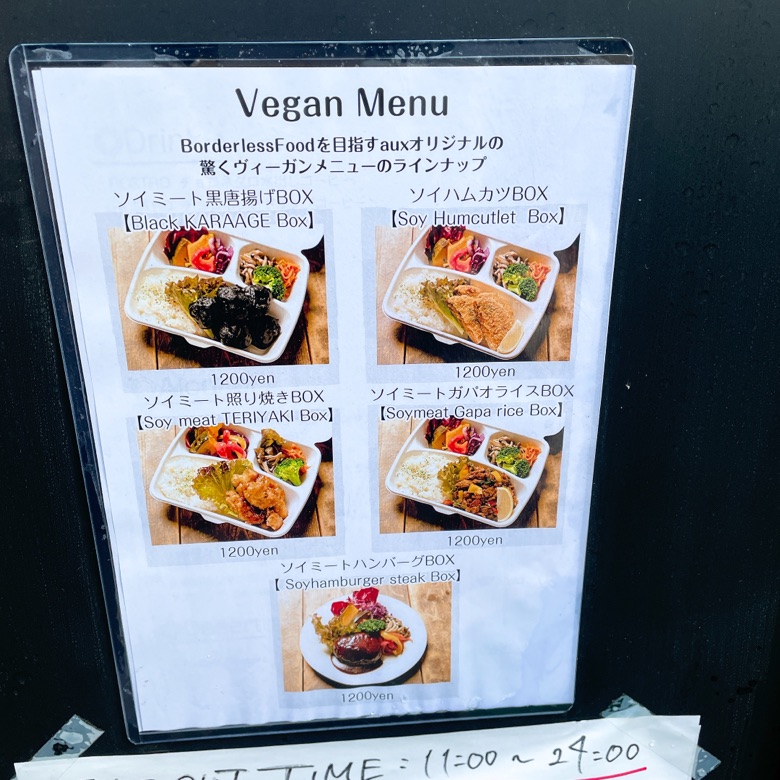 Vegan Menu
BorderlessFoodを目指すauxオリジナルの
驚くヴィーガンメニューのラインナップ
ソイミート黒唐揚げBOX
【Black KARAAGE Box】
1200yen
ソイハムカツBOX
【Soy Humcutlet Box】
1200yen
ソイミート照り焼きBOX
【Soy meat TERIYAKI Box】
1200yen
ソイミートガパオライスBOX
【Soymeat Gapa rice Box】
1200yen
ソイミートハンバーグBOX
【 Soyhamburger steak Box】
1200yen
OUT TIME : 11:00 ~ 24:00